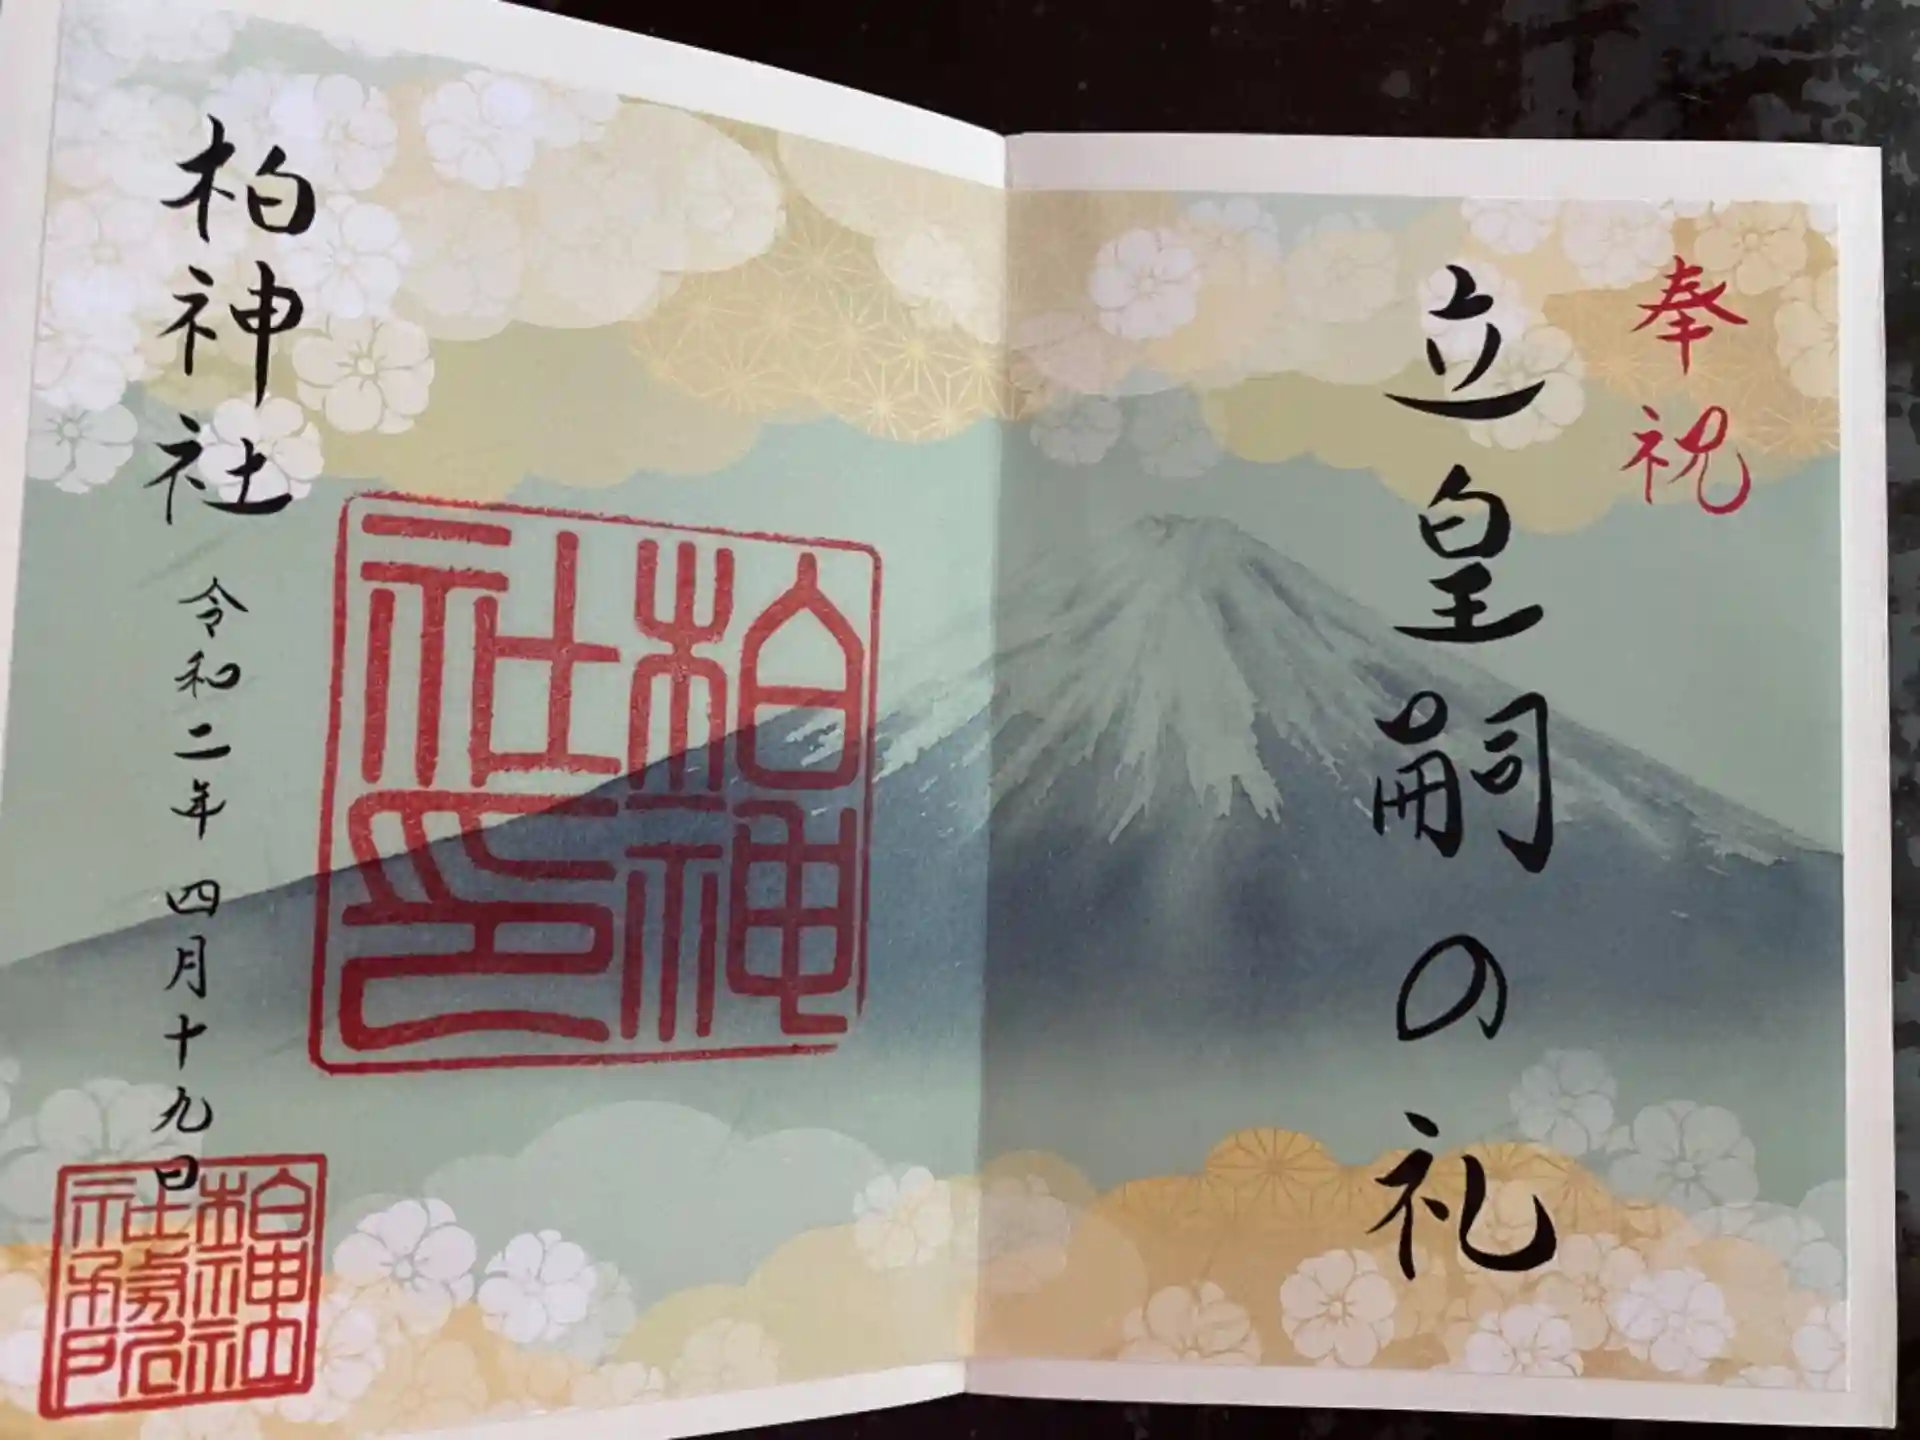 奉祝
立皇嗣の礼
柏神社
令和二年 四月十九日
柏神社印
柏神社社務所